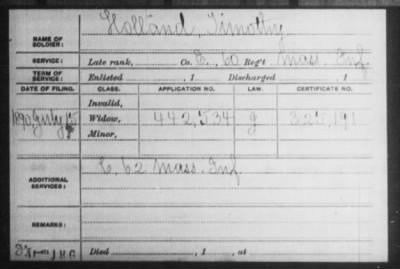 NAME OF SOLDIER: Holland, Timothy
SERVICE: Late rank, Co. E. 60 Reg't Mass. Inf.
TERM OF SERVICE: Enlisted , 1 Discharged , 1
DATE OF FILING. CLASS. APPLICATION NO. LAW. CERTIFICATE NO.
Invalid,
1890 July Widow, 442,534 g 325,191
Minor,
ADDITIONAL SERVICES: C. 62 Mass. Inf.
REMARKS:
J H G Died , 1 , at